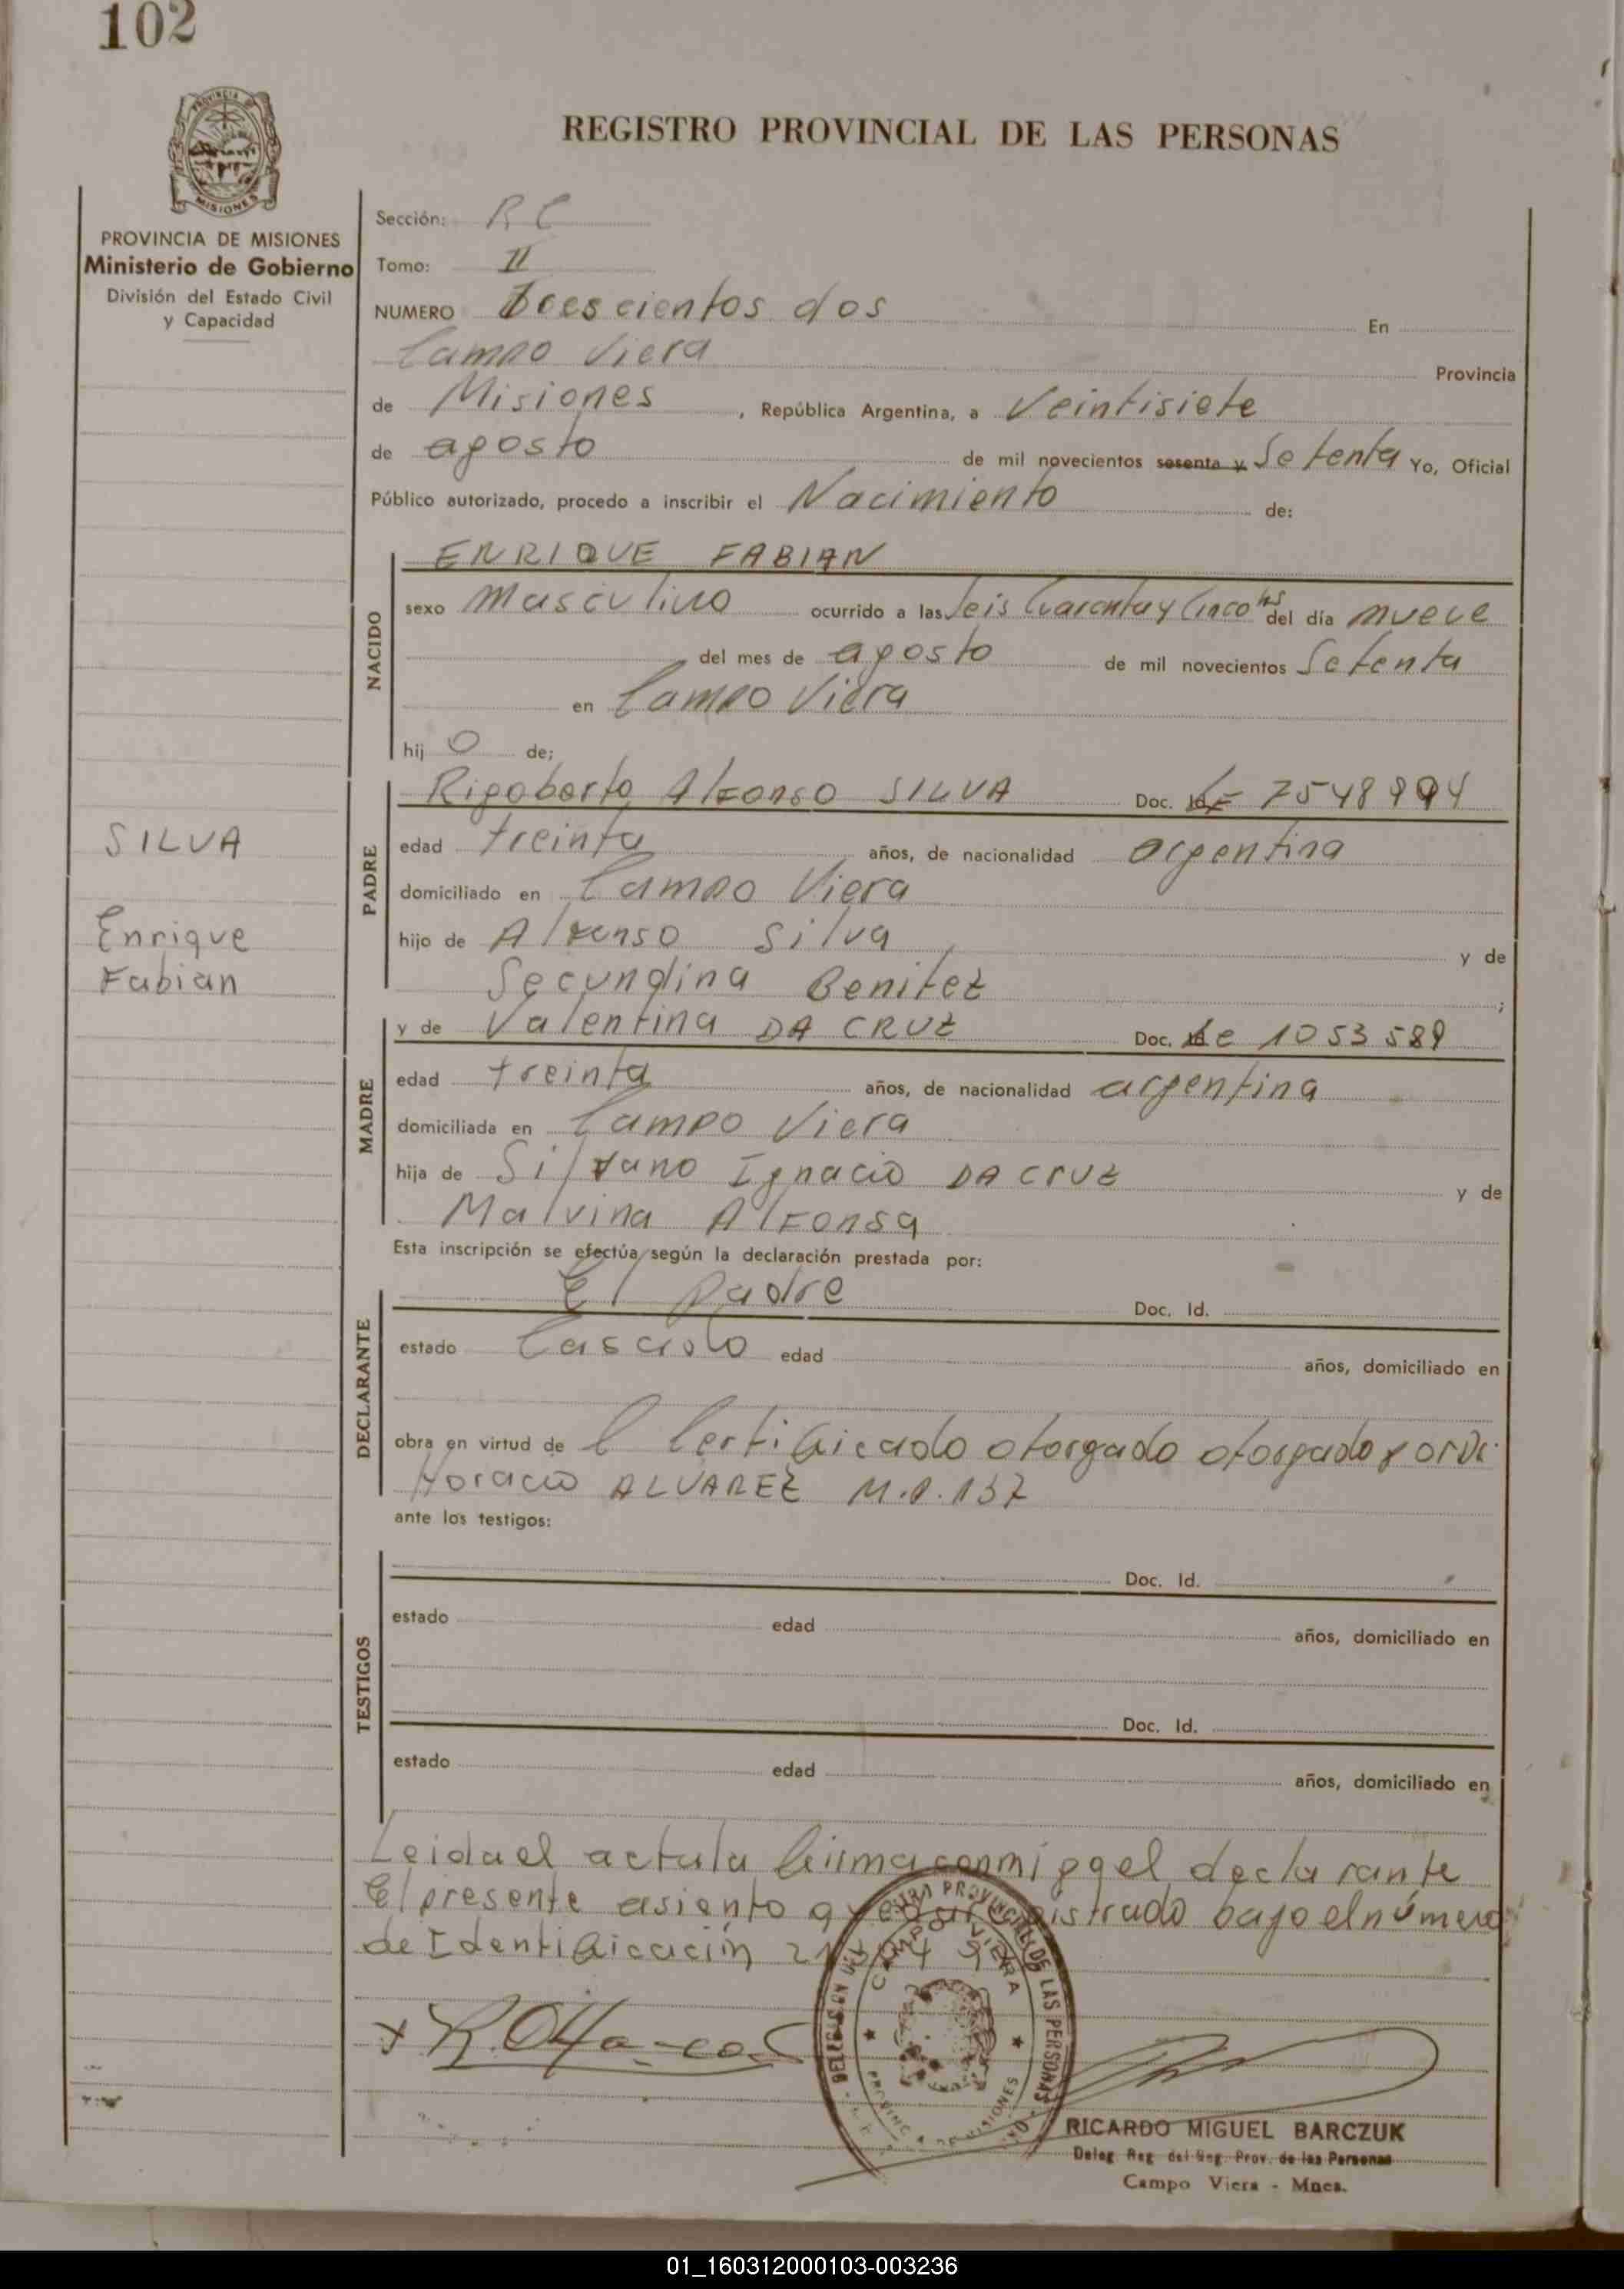 102
PROVINCIA DE MISIONES
REGISTRO PROVINCIAL DE LAS PERSONAS
PROVINCIA DE MISIONES
Ministerio de Gobierno
División del Estado Civil
y Capacidad
Sección: R C
Tomo: II
NUMERO Trescientos dos En
Campo Viera Provincia
de Misiones, República Argentina, a Veintisiete
de agosto de mil novecientos sesenta y Setenta Yo, Oficial
Público autorizado, procedo a inscribir el Nacimiento de:
NACIDO
ENRIQUE FABIAN
sexo Masculino ocurrido a las Seis Cuarenta y Cinco hs del día nueve
del mes de agosto de mil novecientos Setenta
en Campo Viera
hij o de;
PADRE
Rigoberto Alfonso SILVA Doc. Id. LE 7548994
edad treinta años, de nacionalidad argentina
domiciliado en Campo Viera
hijo de Alfonso Silva y de
Secundina Benitez ;
SILVA
Enrique
Fabian
MADRE
y de Valentina DA CRUZ Doc. Id. Lc 1053589
edad treinta años, de nacionalidad argentina
domiciliada en Campo Viera
hija de Silvano Ignacio DA CRUZ y de
Malvina Alfonsa
Esta inscripción se efectúa según la declaración prestada por:
DECLARANTE
El Padre Doc. Id.
estado Casado edad años, domiciliado en
obra en virtud de l Certificado otorgado otorgado por Dr.
Horacio ALVAREZ M.P. 137
ante los testigos:
TESTIGOS
Doc. Id.
estado edad años, domiciliado en
Doc. Id.
estado edad años, domiciliado en
Leida el acta la firma conmigo el declarante
El presente asiento queda registrado bajo el número
de Identificación
CAMPO VIERA
PROVINCIAL DE LAS PERSONAS
PROVINCIA DE MISIONES
RICARDO MIGUEL BARCZUK
Deleg. Reg. del Reg. Prov. de las Personas
Campo Viera - Mnes.
01_160312000103-003236